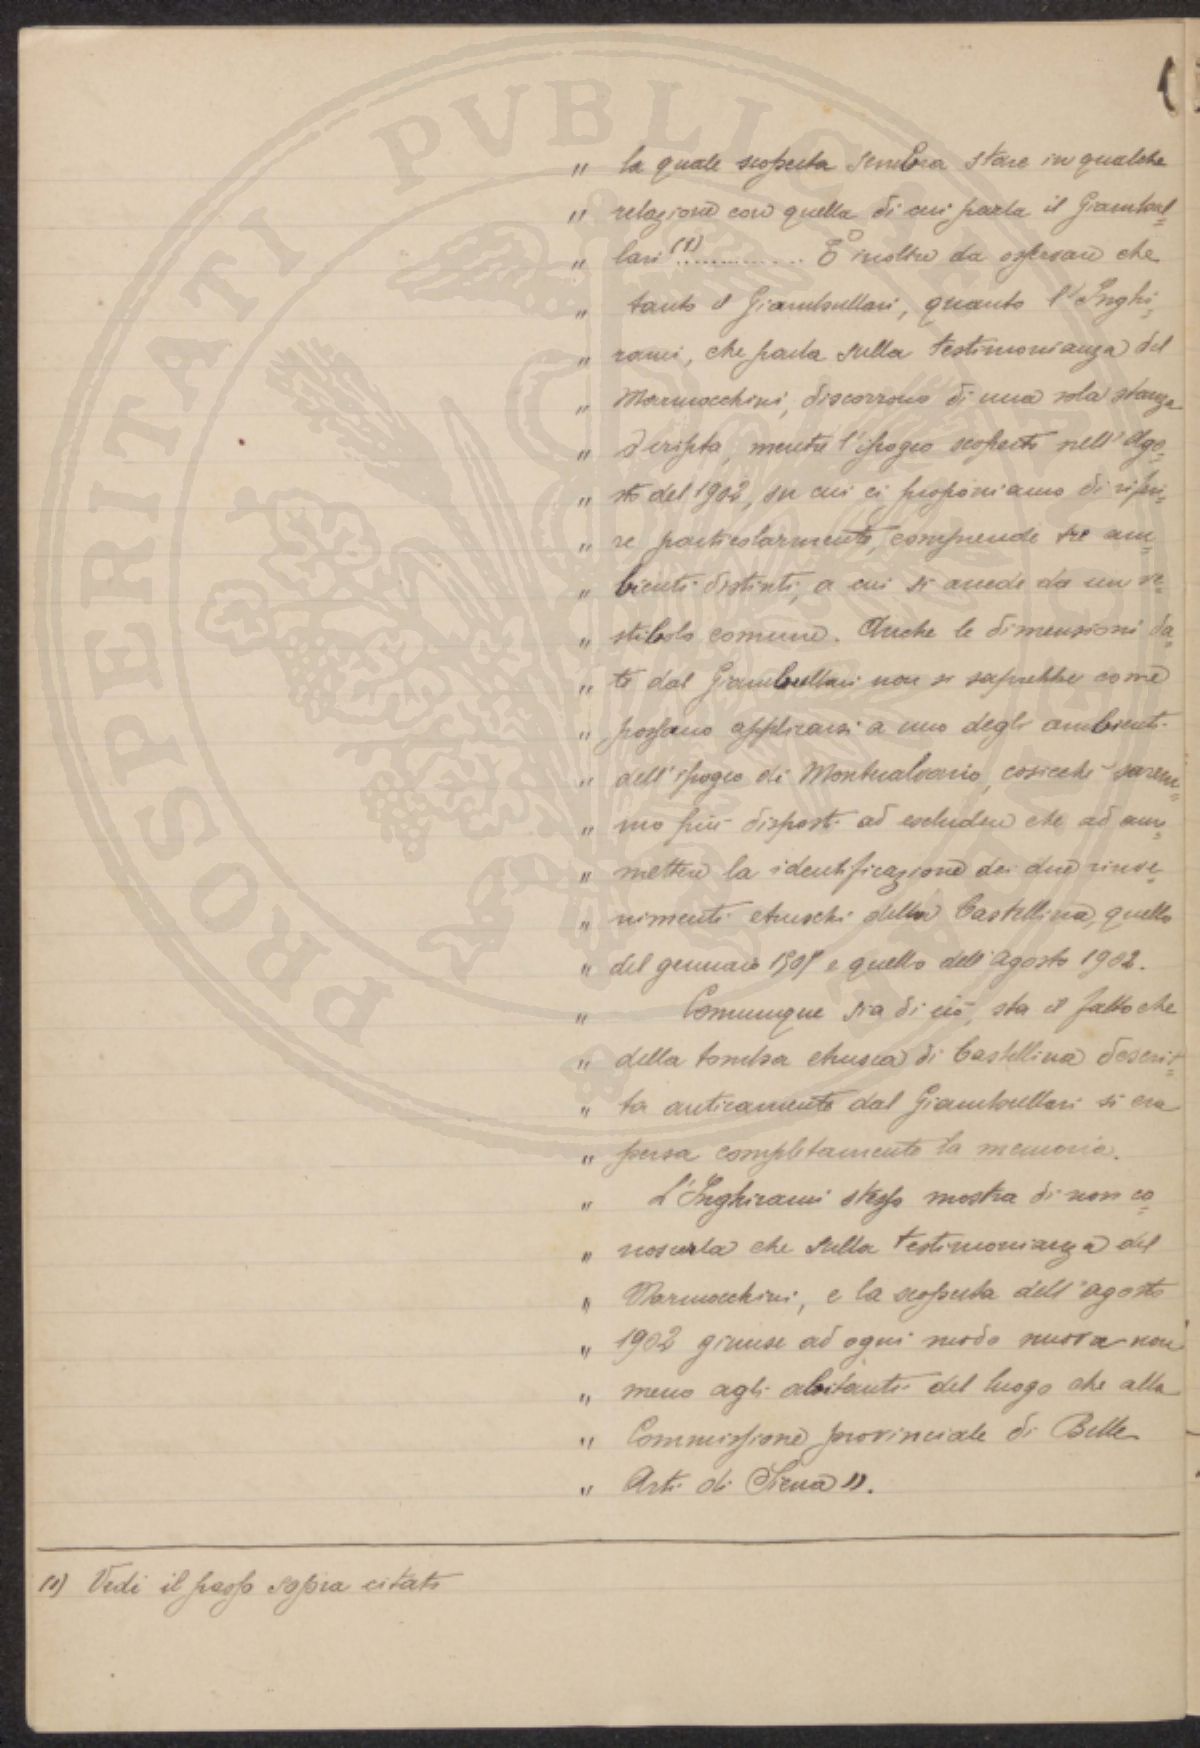 " la quale scoperta sembra stare in qualche
" relazione con quella di cui parla il Giambul=
" lari (1) ............. È inoltre da osservare che
" tanto il Giambullari, quanto l'Inghi=
" rami, che parla sulla testimonianza del
" Marmocchini, discorrono di una sola stanza
" o cripta, mentre l'ipogeo scoperto nell'Ago=
" sto del 1902, su cui ci proponiamo di riferi=
" re particolarmente, comprende tre am=
" bienti distinti, a cui si accede da un ve=
" stibolo comune. Anche le dimensioni da=
" te dal Giambullari non si saprebbe come
" possano applicarsi a uno degli ambienti
" dell'ipogeo di Montecalvario, cosicchè sarem=
" mo più disposti ad escludere che ad am=
" mettere la identificazione dei due rinve=
" nimenti etruschi della Castellina, quello
" del gennaio 1507 e quello dell'Agosto 1902.
" Comunque sia di ciò, sta il fatto che
" della tomba etrusca di Castellina descrit=
" ta anticamente dal Giambullari si era
" persa completamente la memoria.
" L'Inghirami stesso mostra di non co=
" noscerla che sulla testimonianza del
" Marmocchini, e la scoperta dell'agosto
" 1902 giunse ad ogni modo nuova non
" meno agli abitanti del luogo che alla
" Commissione provinciale di Belle
" Arti di Siena ".
(1) Vedi il passo sopra citato
PROSPERITATI PVBLICAE